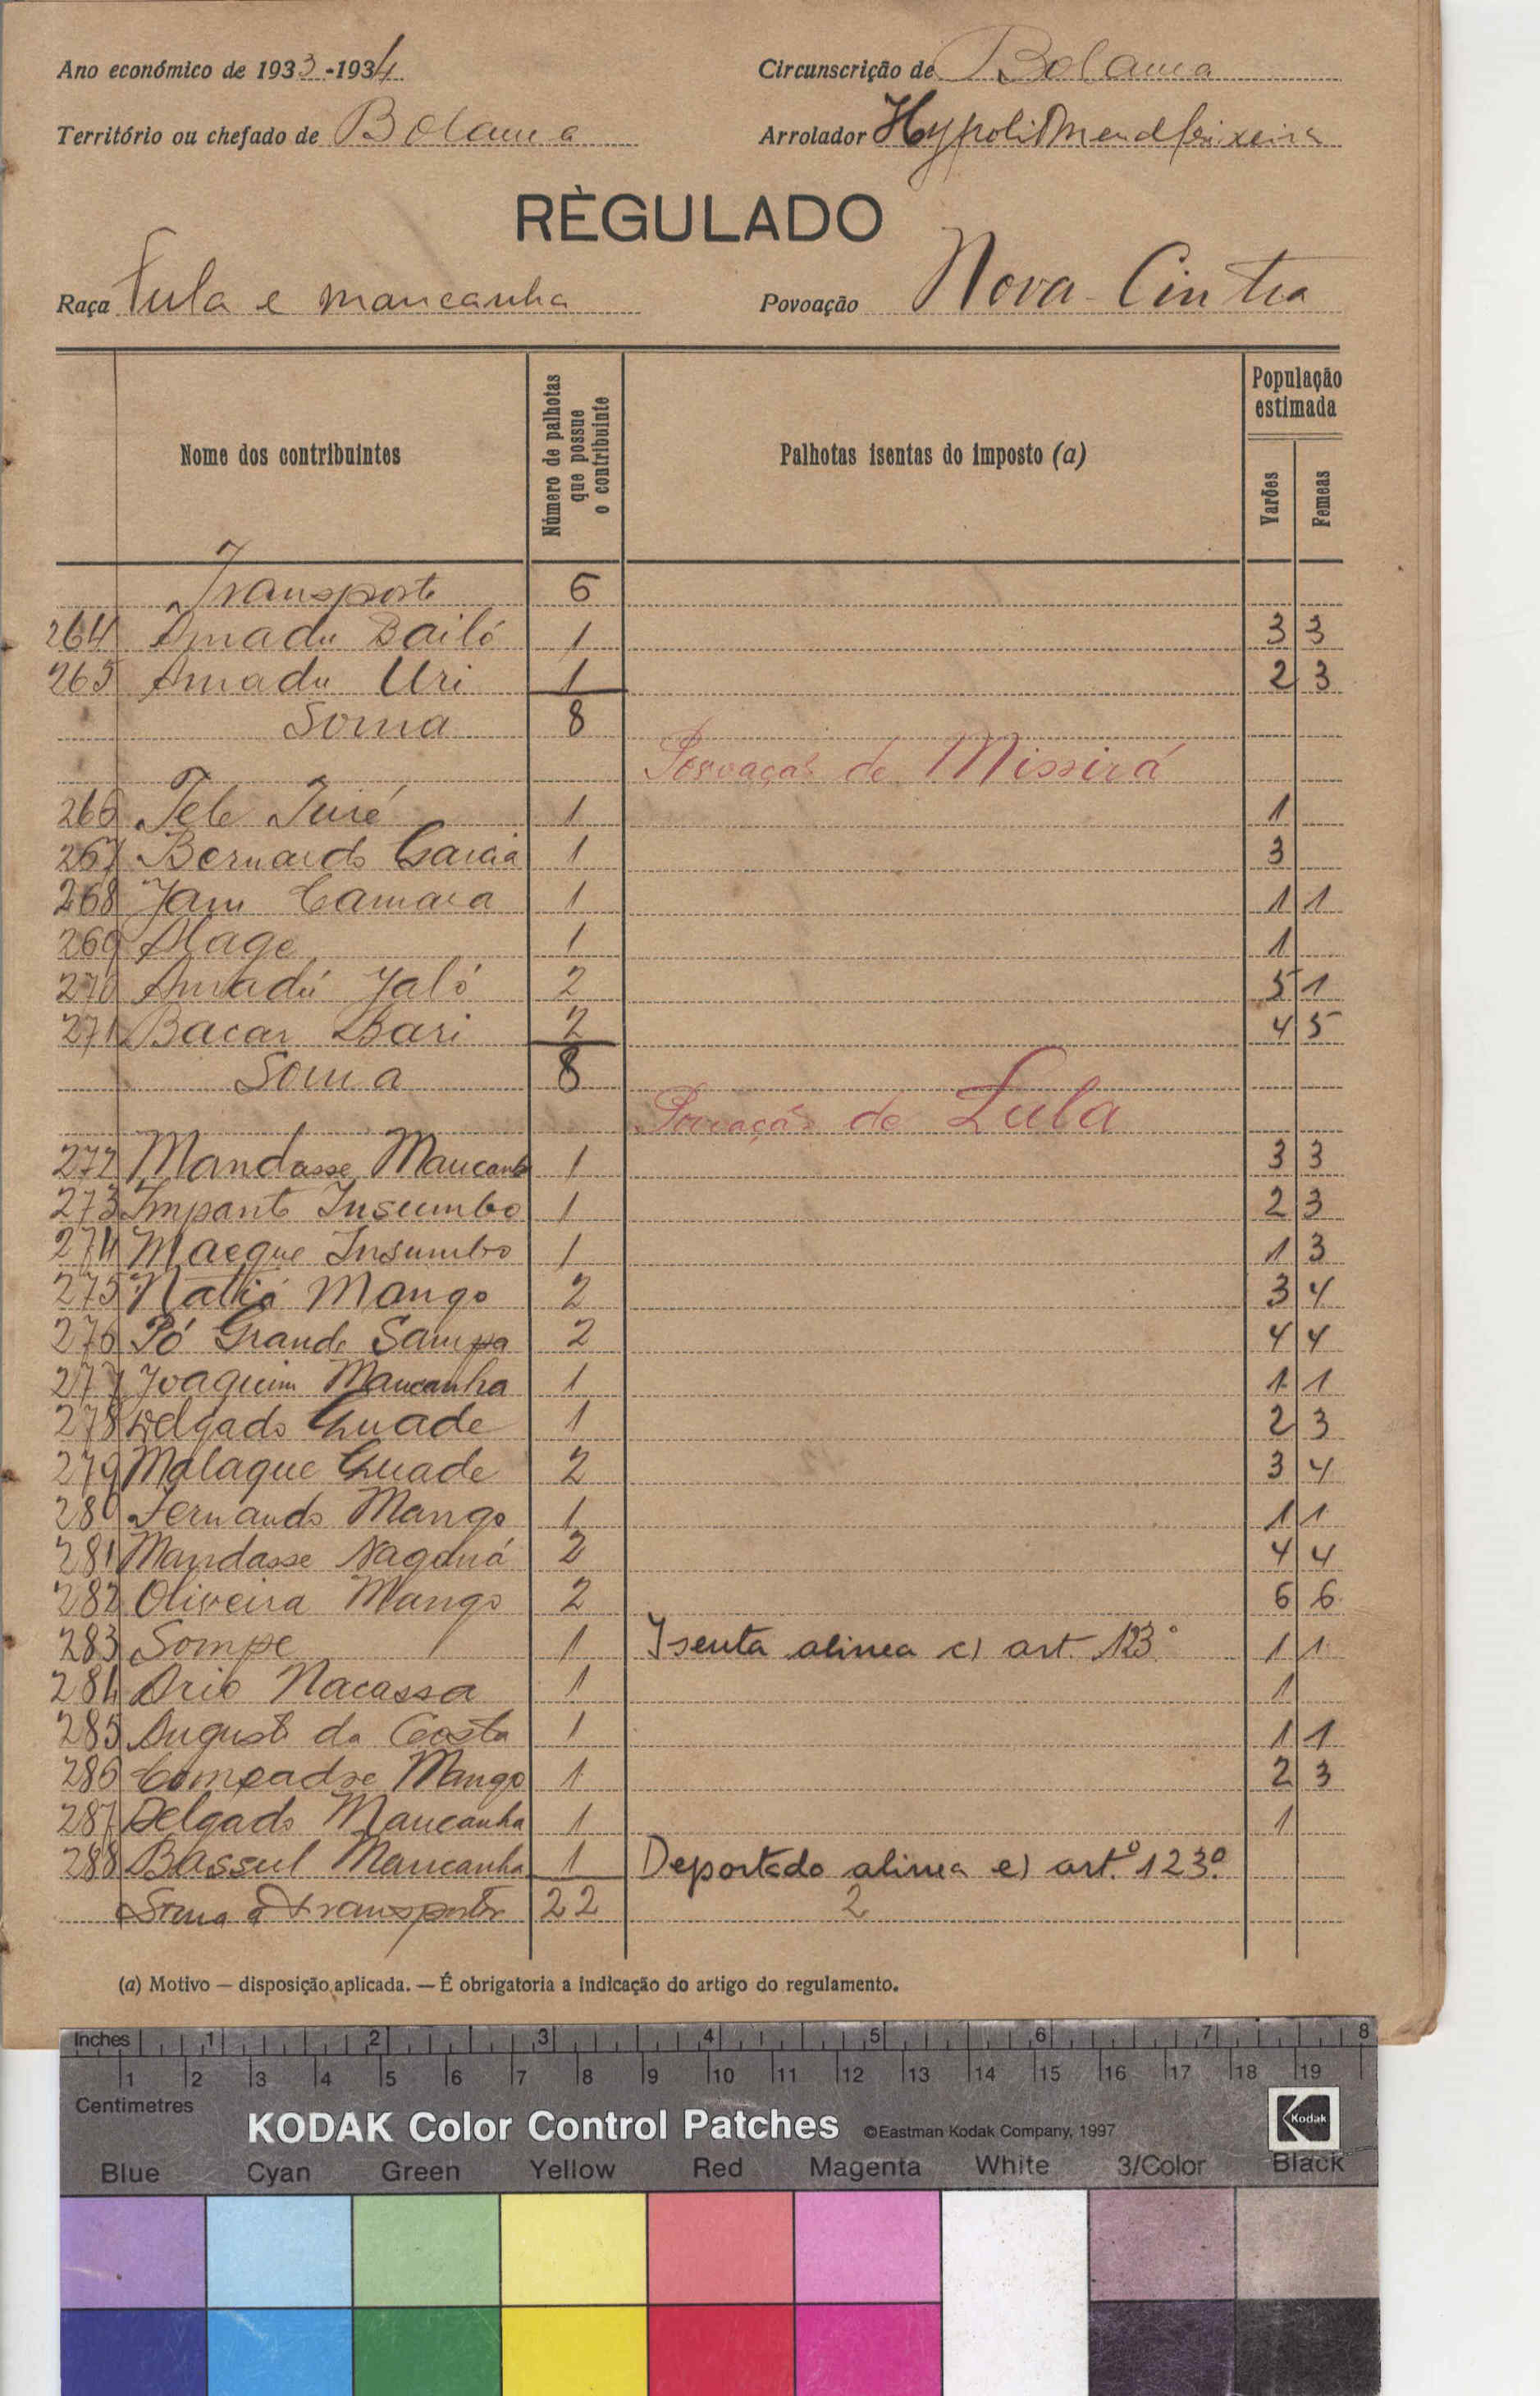 Ano económico de 1933-1934 Circunscrição de Bolama
Território ou chefado de Bolama Arrolador Hypolit
RÈGULADO
Raça Fula e mancanha Povoação Nova-Cintra
Nome dos contribuintes Número de palhotas que possue o contribuinte Palhotas isentas do imposto (a) População estimada Varões Femeas
Transporte 6
264 Amadu Bailó 1 3 3
265 Amadu Uri 1 2 3
Soma 8
Povoação de Missirá
266 Tele Turé 1 1
267 Bernardo Garcia 1 3
268 Jam Camara 1 1 1
269 Alage 1 1
270 Amadú Jaló 2 5 1
271 Bacar Bari 2 4 5
Soma 8
Povoação de Lula
272 Mandasse Mancanha 1 3 3
273 Impanto Insumbo 1 2 3
274 Maeque Insumbo 1 1 3
275 Natió Mango 2 3 4
276 Pó Grande Sampa 2 4 4
277 Joaquim Mancanha 1 1 1
278 Delgado Guade 1 2 3
279 Malaque Guade 2 3 4
280 Fernando Mango 1 1 1
281 Mandasse 2 4 4
282 Oliveira Mango 2 6 6
283 Sompe 1 Isenta alinea c) art. 123º 1 1
284 Nacassa 1 1
285 Augusto da Costa 1 1 1
286 Compadre Mango 1 2 3
287 Delgado Mancanha 1 1
288 Bassul Mancanha 1 Deportado alinea e) art.º 123º
Soma a transportar 22 2
(a) Motivo — disposição aplicada. — É obrigatoria a indicação do artigo do regulamento.
Inches 1 2 3 4 5 6 7 8
1 2 3 4 5 6 7 8 9 10 11 12 13 14 15 16 17 18 19
Centimetres
KODAK Color Control Patches ©Eastman Kodak Company, 1997 Kodak
Blue Cyan Green Yellow Red Magenta White 3/Color Black